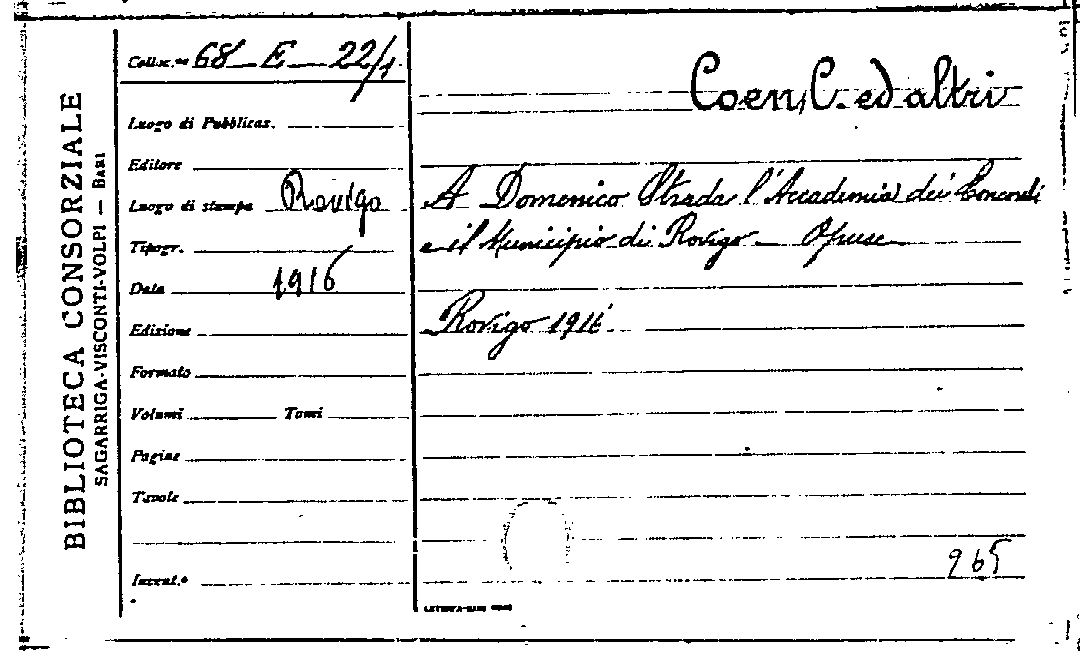 BIBLIOTECA CONSORZIALE
SAGARRIGA-VISCONTI-VOLPI — BARI
Colloc.ne 68 E 22/1
Luogo di Pubblicaz.
Editore
Luogo di stampa Rovigo
Tipogr.
Data 1916
Edizione
Formato
Volumi Tomi
Pagine
Tavole
Invent.º
Coen, C. ed altri
A Domenico Strada l'Accademia dei Concordi
e il Municipio di Rovigo — Opusc
Rovigo 1916.
965